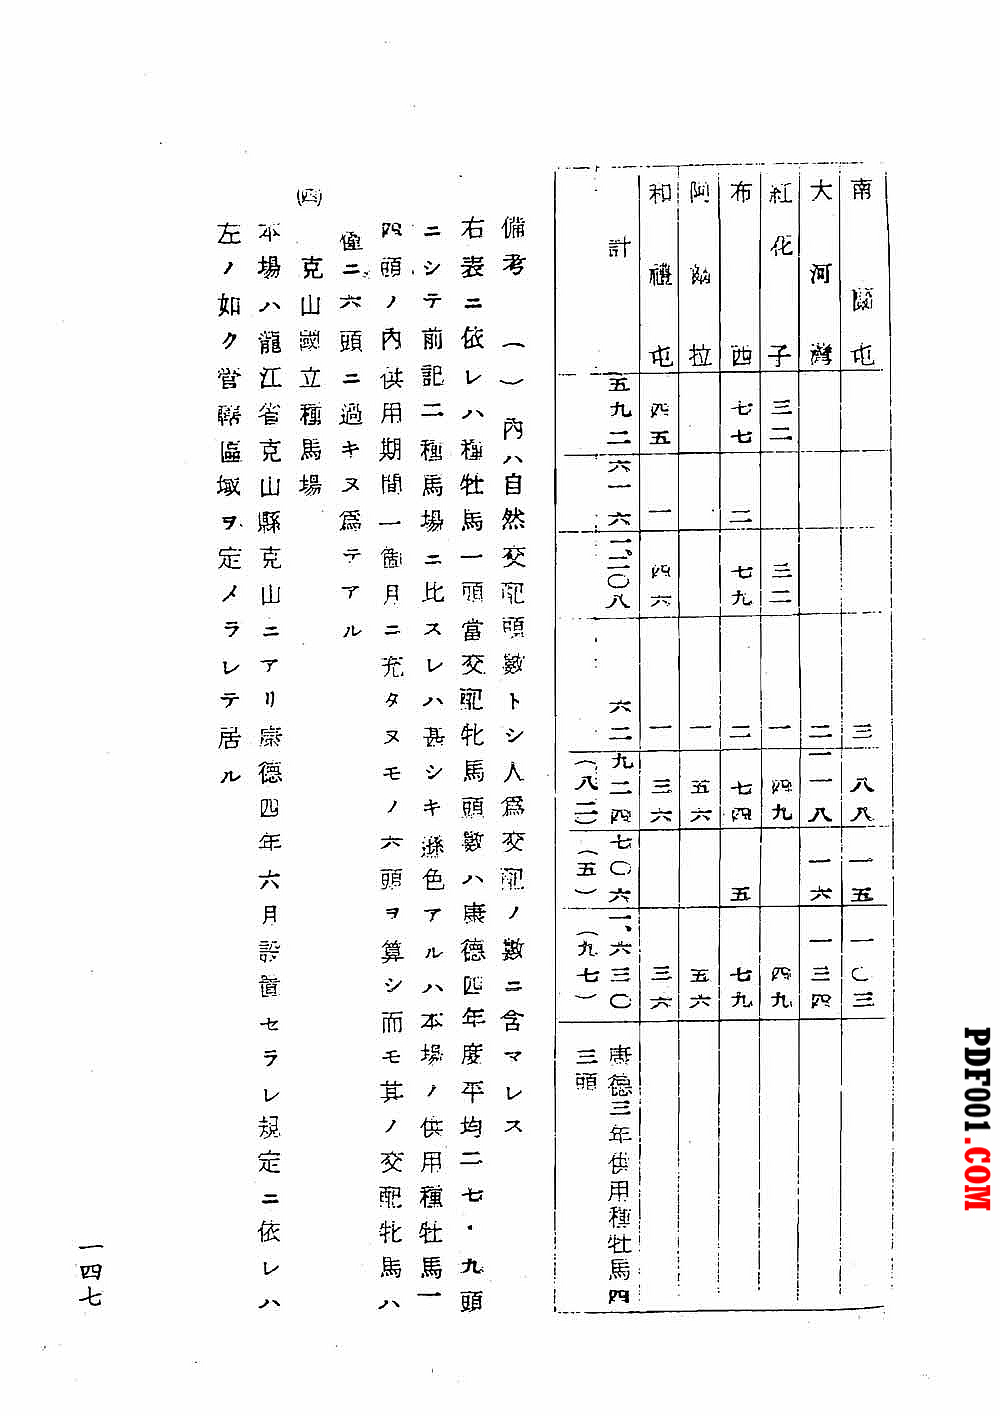 南圜屯 三 八八 一五 一〇三
大河灣 二 一一八 一六 一三四
紅化子 三二 三二 一 四九 四九
布西 七七 二 七九 二 七四 五 七九
阿爾拉 一 五六 五六
和禮屯 四五 一 四六 一 三六 三六
計 五九二 六一六 一、二〇八 六二 九二四 (八二) 七〇六 (五) 一、六三〇 (九七) 康德三年供用種牡馬四
三頭
備考 (一)內ハ自然交配頭數トシ人爲交配ノ數ニ含マレス
右表ニ依レハ種牡馬一頭當交配牝馬頭數ハ康德四年度平均二七・九頭
ニシテ前記二種馬場ニ比スレハ甚シキ遜色アルハ本場ノ供用種牡馬一
四頭ノ內供用期間一箇月ニ充タヌモノ六頭ヲ算シ而モ其ノ交配牝馬ハ
僅ニ六頭ニ過キヌ爲テアル
(四) 克山國立種馬場
本場ハ龍江省克山縣克山ニアリ康德四年六月設置セラレ規定ニ依レハ
左ノ如ク管轄區域ヲ定メラレテ居ル
一四七
PDF001.COM